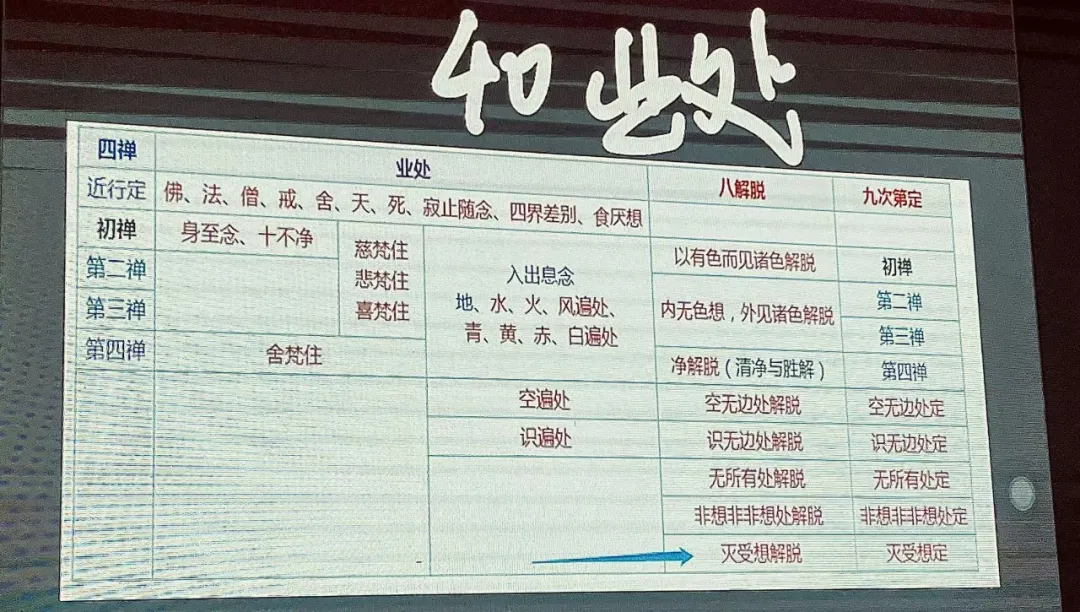 40业处
四禅 业处 八解脱 九次第定
近行定 佛、法、僧、戒、舍、天、死、寂止随念、四界差别、食厌想
初禅 身至念、十不净 慈梵住 以有色而见诸色解脱 初禅
第二禅 悲梵住 入出息念 第二禅
第三禅 喜梵住 地、水、火、风遍处、 内无色想，外见诸色解脱 第三禅
青、黄、赤、白遍处
第四禅 舍梵住 净解脱（清净与胜解） 第四禅
空遍处 空无边处解脱 空无边处定
识遍处 识无边处解脱 识无边处定
无所有处解脱 无所有处定
非想非非想处解脱 非想非非想处定
灭受想解脱 灭受想定